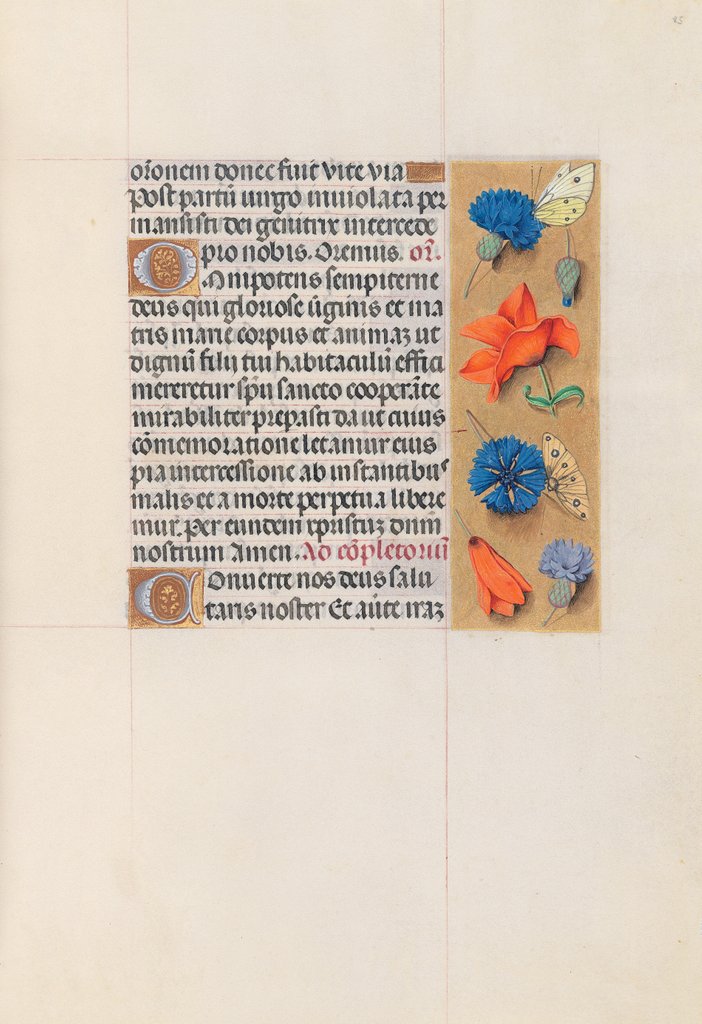 85
or̄onem donec fuit vite via
Post partū uirgo inuiolata per
mansisti dei genitrix intercede
pro nobis. Oremus. or̄.
Omnipotens sempiterne
deus qui gloriose ūginis et ma
tris marie corpus et animaʒ ut
dignū filij tui habitaculū effici
mereretur spū sancto cooperāte
mirabiliter preparasti da ut cuius
cōmemoratione letamur eius
pia intercessione ab instantibus
malis et a morte perpetua libere
mur. Per eundem xpristuʒ dnm̄
nostrum Amen. Ad cōpletoriū
Conuerte nos deus salu
taris noster Et aūte iraʒ